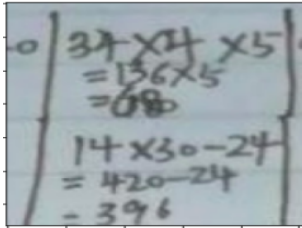 34×4×5
=136×5
=680
14×30-24
=420-24
=396